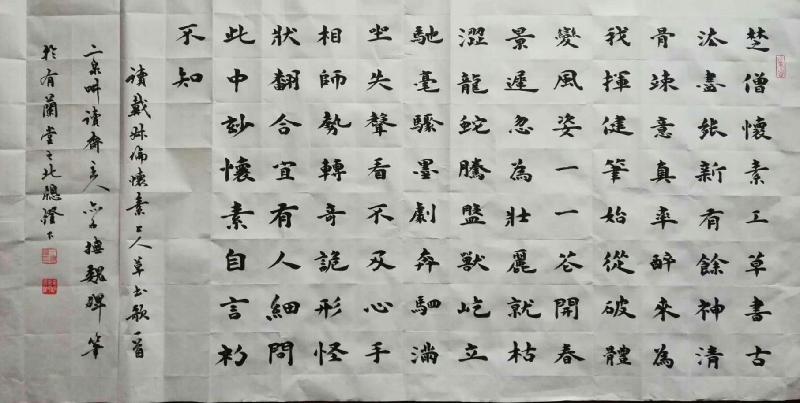 楚僧懷素工草書古
法盡能新有餘神清
骨竦意真率醉來為
我揮健筆始從破體
變風姿一一花開春
景遲忽為壯麗就枯
澀龍蛇騰盤獸屹立
馳毫驟墨劇奔駟滿
坐失聲看不及心手
相師勢轉奇詭形怪
狀翻合宜有人細問
此中妙懷素自言初
不知
讀戴叔倫懷素上人草书歌一首
二泉讀齋主人撫魏碑筆
於有蘭堂之北牕燈下